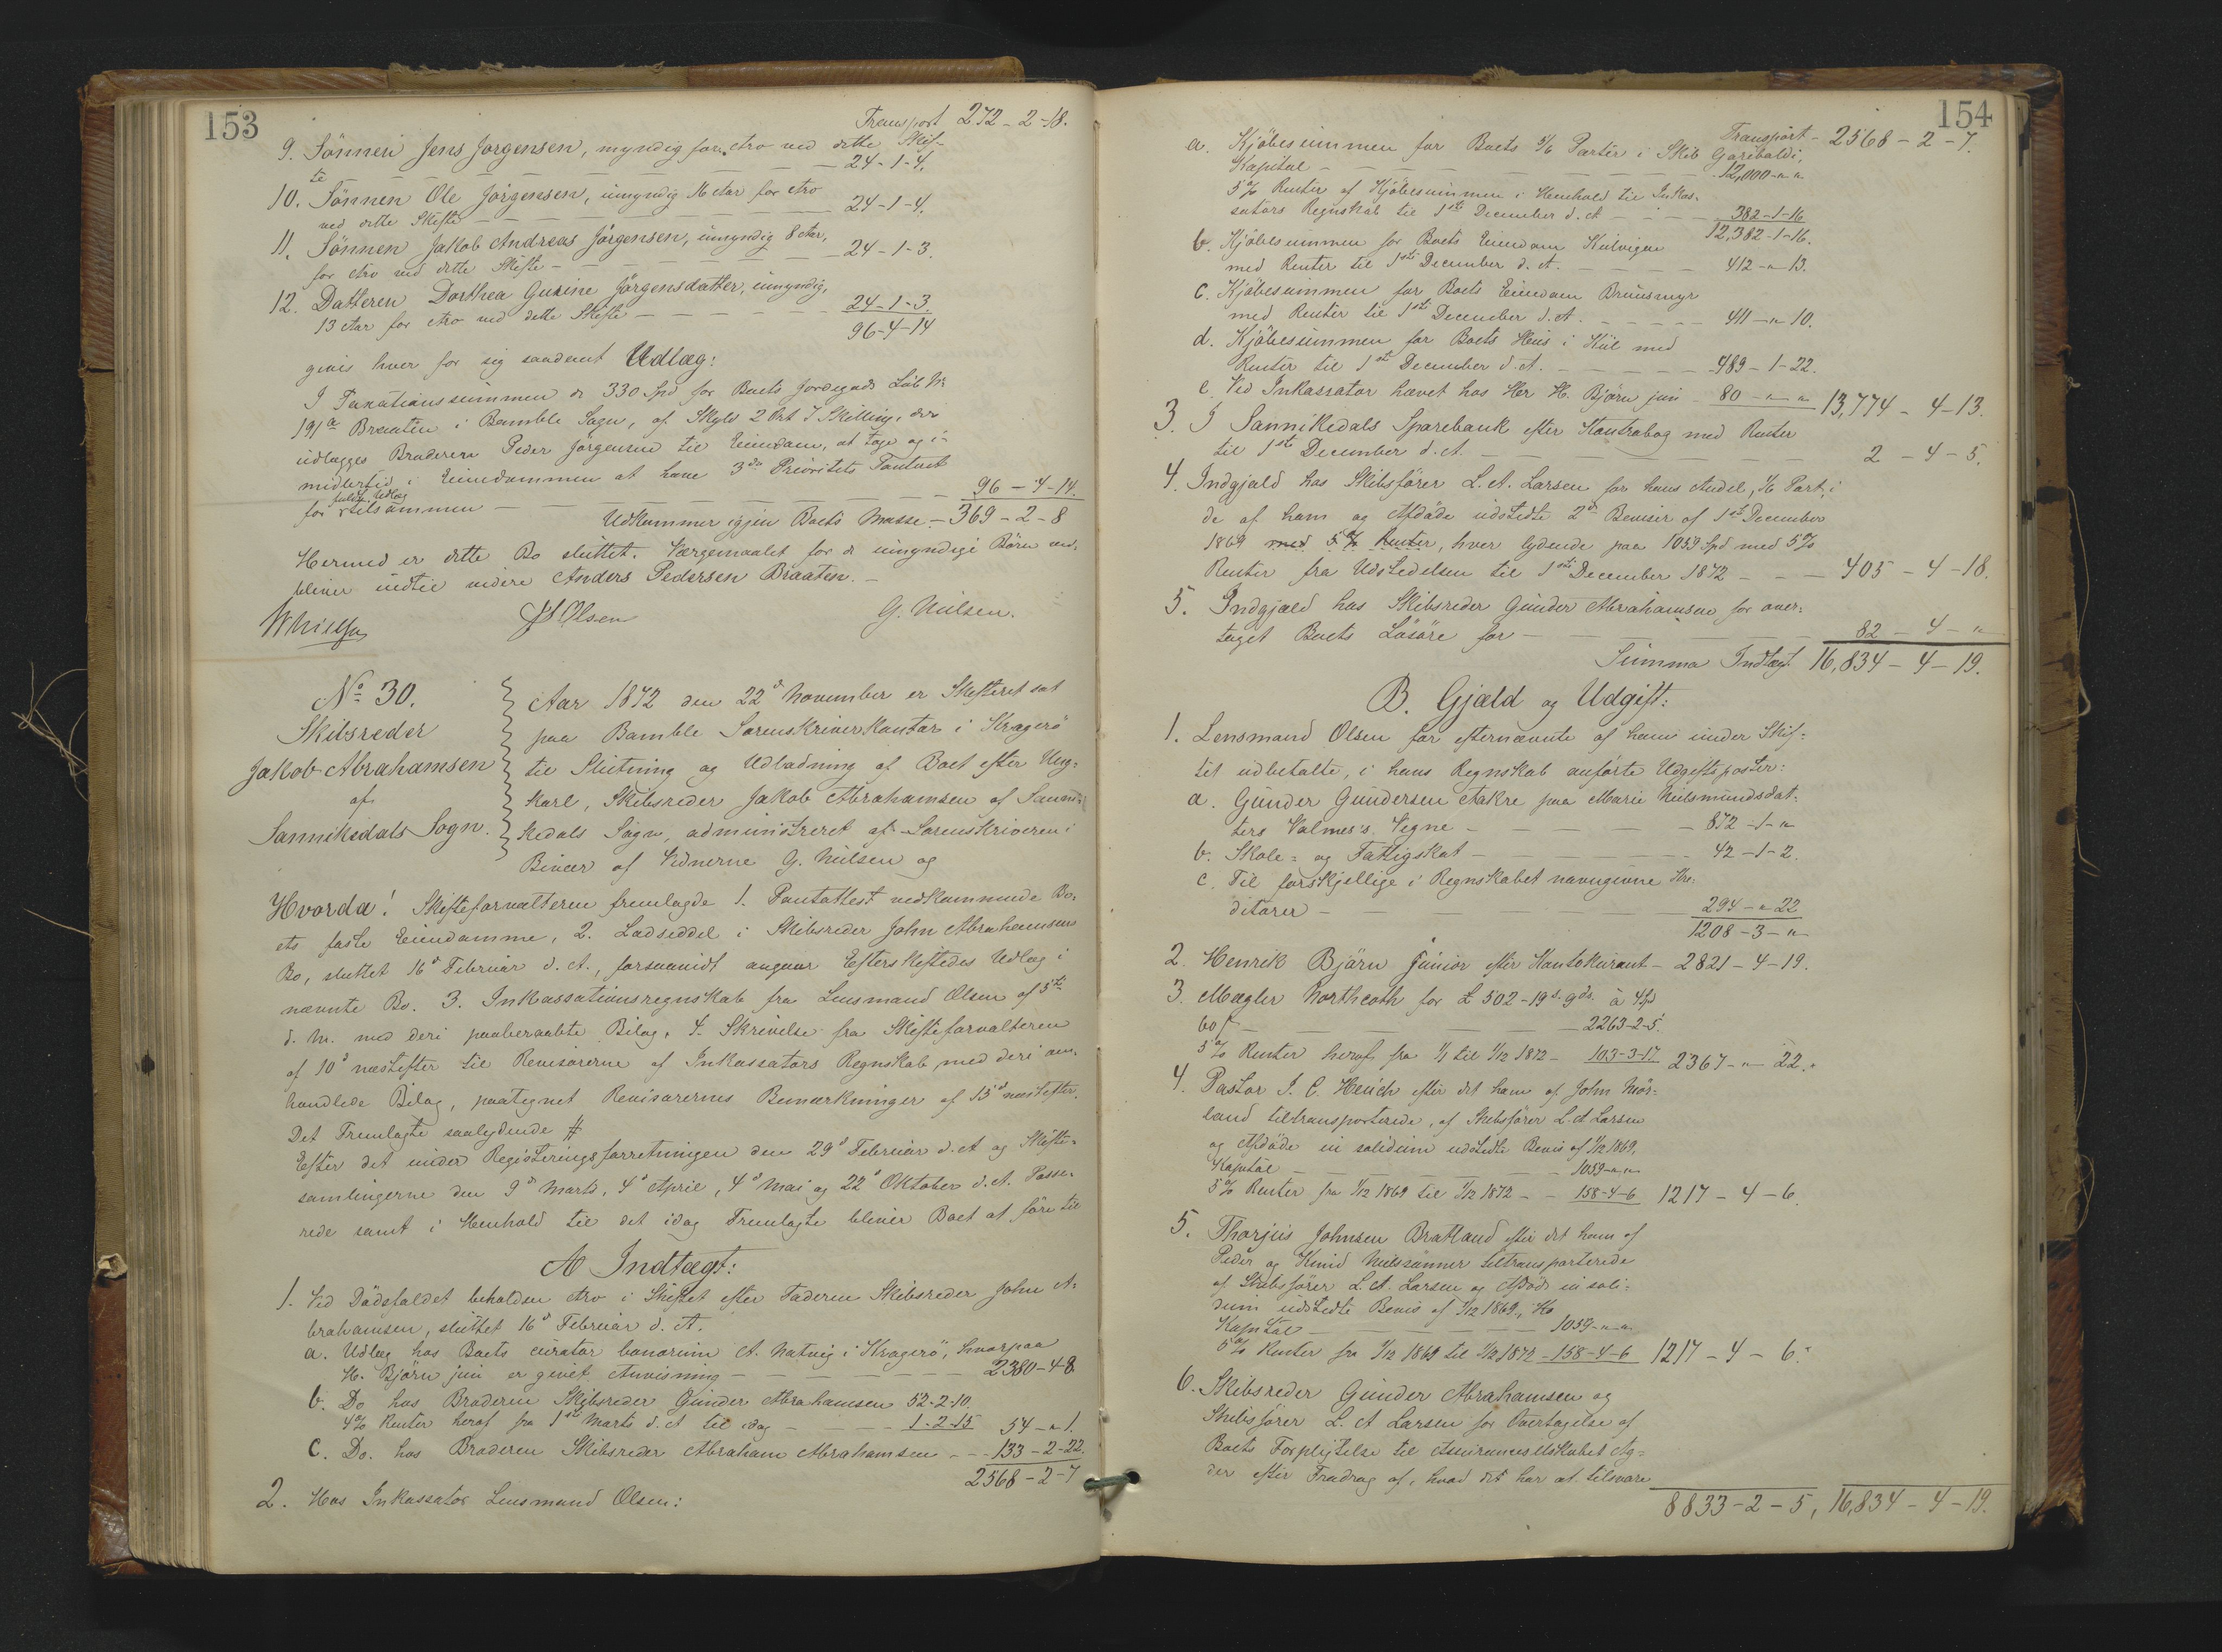 153
Transport 272-2-18.
9. Sönnen Jens Jörgensen, myndig for Arv ved dette Skif-
te — — — 24-1-4.
10. Sönnen Ole Jörgensen, umyndig 16 Aar for Arv
ved dette Skifte — — — 24-1-4.
11. Sönnen Jakob Andreas Jörgensen, umyndig 8 Aar,
for Arv ved dette Skifte — — — 24-1-3.
12. Datteren Dorthea Gurine Jörgensdatter, umyndig,
13 Aar for Arv ved dette Skifte — — — 24-1-3.
96-4-14
givis hver for sig saadant Udlæg:
I Taxationssummen de 330 Spd for Boets Jordegods Löb No
191a Braaten i Bamble Sogn, af Skyld 2 Ort 7 Skilling, der
udlægges Broderen Peder Jörgensen til Eiendom, at tage og i-
midlertid i Eiendommen at have 3die Prioritets Panteret
fuldt Udlæg
for tilsammen — — — 96-4-14.
Udkommer igjen Boets Masse — 369-2-8
Hermed er dette Bo sluttet. Værgemaalet for de umyndige Börn ved-
bliver indtil videre Anders Pedersen Braaten. —
J Olsen G. Nilsen.
No 30.
Skibsreder
Jakob Abrahamsen
af
Sannikedals Sogn.
Aar 1872 den 22d November er Skifteret sat
paa Bamble Sorenskriverkontor i Kragerö
til Slutning og Udlodning af Boet efter Ung-
karl, Skibsreder Jakob Abrahamsen af Sanni-
kedals Sogn, administreret af Sorenskriveren i
Bivær af Vidnerne G. Nilsen og
Hvorda! Skifteforvalteren fremlagde 1. Pantattest vedkommende Bo-
ets faste Eiendomme, 2. Lodseddel i Skibsreder John Abrahamsens
Bo, sluttet 16d Februar d. A., forsaavidt angaar Efterskiftedes Udlæg i
nævnte Bo. 3. Inkassationsregnskab fra Lensmand Olsen af 5te
d. M. med deri paaberaabte Bilag. 4. Skrivelse fra Skifteforvalteren
af 10d næstefter til Revisorerne af Inkassators Regnskab, med deri om-
handlede Bilag, paategnet Revisorernes Bemærkninger af 15d næstefter.
Det Fremlagte saalydende #
Efter det under Registeringsforretningen den 29d Februar d. A og Skifte-
samlingerne den 9d Marts, 4d April, 4d Mai og 22d Oktober d. A. Passe-
rede samt i Henhold til det idag Fremlagte bliver Boet at före til
A Indtægt:
1. Ved Dödsfaldet beholden Arv i Skiftet efter Faderen Skibsreder John A-
brahamsen, sluttet 16d Februar d. A.
a. Udlæg hos Boets curator bonorum A. Natvig i Kragerö, hvorpaa
H. Björn jun er givet Anvisning — — — 2380-4-8
b. Do hos Broderen Skibsreder Gunder Abrahamsen 52-2-10.
4% Renter heraf fra 1ste Marts d. A til idag — — 1-2-15 54-"-1.
c. Do. hos Broderen Skibsreder Abraham Abrahamsen — — 133-2-22.
2568-2-7
2. Hos Inkassator Lensmand Olsen:
154
Transport — 2568-2-7.
a. Kjöbesummen for Boets 5/6 Parter i Skib Garibaldi,
Kapital — — — 12,000-"-"
5% Renter af Kjöbesummen i Henhold til Inkas-
sators Regnskab til 1ste December d. A — — 382-1-16
12,382-1-16.
b. Kjöbesummen for Boets Eiendom Kulvigen
med Renter til 1ste December d. A. — — — 412-"-13.
c. Kjöbesummen for Boets Eiendom Bruusmyr
med Renter til 1ste December d. A. — — — 411-"-10.
d. Kjöbesummen for Boets Huus i Kiil med
Renter til 1ste December d. A. — — — 489-1-22.
e. Ved Inkassator hævet hos Hr H. Björn jun — 80-"-" 13,774-4-13.
3. I Sannikedals Sparebank efter Kontrabog med Renter
til 1ste December d. A. — — — 2-4-5.
4. Indgjæld hos Skibsförer L. A. Larsen for hans Andel, 1/6 Part, i
de af ham og Afdöde udstedte 2de Beviser af 1ste December
1869 med 5% Renter, hver lydende paa 1059 Spd med 5%
Renter fra Udstedelsen til 1ste December 1872 — — — 405-4-18.
5. Indgjæld hos Skibsreder Gunder Abrahamsen for over-
taget Boets Lösöre for — — — 82-4-"
Summa Indtægt 16,834-4-19.
B. Gjæld og Udgift:
1. Lensmand Olsen for efternævnte af ham under Skif-
tet udbetalte, i hans Regnskab anförte Udgiftsposter:
a. Gunder Gundersen Aakre paa Marie Nilsmundsdat-
ters Valmes's Vegne — — — 872-1-"
b. Skole- og Fattigskat — — — 42-1-2.
c. Til forskjellige i Regnskabet navngivne Kre-
ditorer — — — 294-"-22
1208-3-"
2. Henrik Björn Junior efter Kontokurant — 2821-4-19.
3. Mægler Northcoth for £ 502-19s.9ds. à 4 Spd
60 s — — — 2263-2-5.
5% Renter heraf fra 1/1 til 1/12 1872 — 103-3-17 2367-"-22."
4. Pastor J. C. Heuch efter det ham af John Mör-
land tiltransporterede, af Skibsförer L. A Larsen
og Afdöde in solidum udstedte Bevis af 1/12 1869,
Kapital — — — 1059-"-"
5% Renter fra 1/12 1869 til 1/12 1872 — — 158-4-6 1217-4-6.
5. Thorjus Johnsen Bratland efter det ham af
Peder og Knud Nielssönner tiltransporterede
af Skibsförer L. A. Larsen og Afdöde in soli-
dum udstedte Bevis af 1/12 1869,
Kapital — — — 1059-"-"
5% Renter fra 1/12 1869 til 1/12 1872 — 158-4-6 1217-4-6."
6. Skibsreder Gunder Abrahamsen og
Skibsförer L. A Larsen for Overtagelse af
Boets Forpligtelse til Assurancesselskabet Ag-
der efter Fradrag af, hvad det har at tilsvare
8833-2-5, 16,834-4-19.